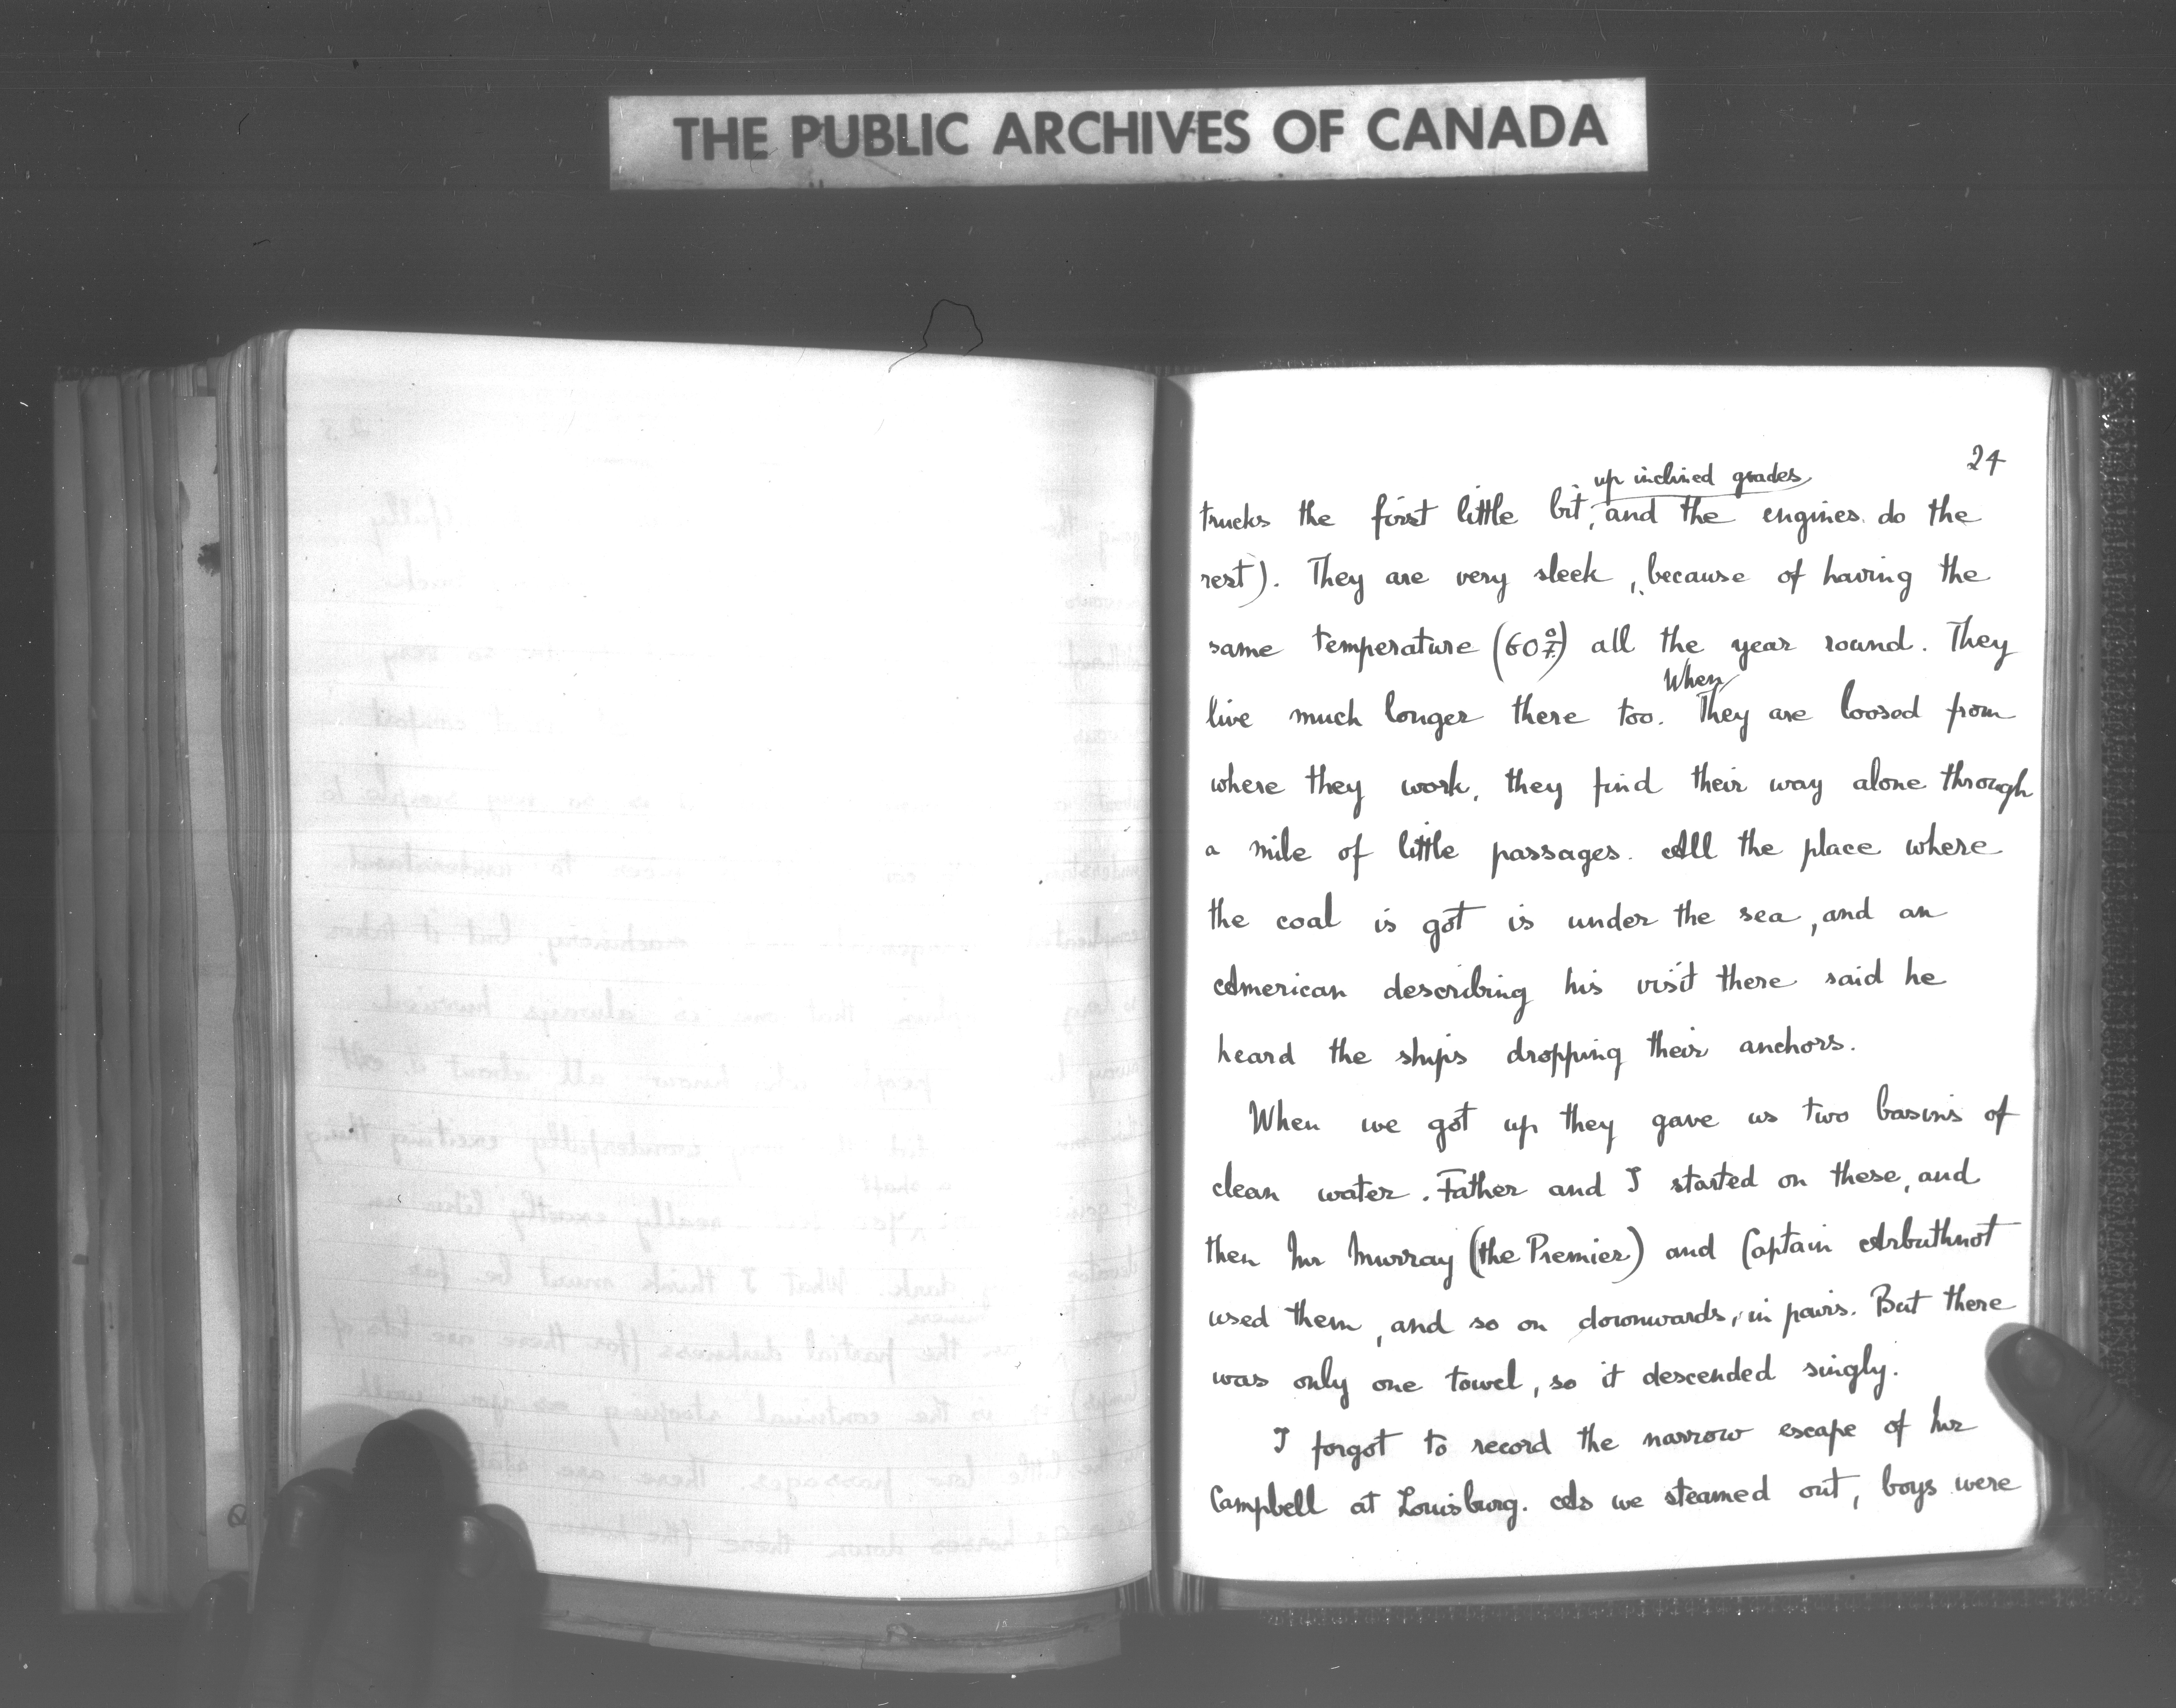 THE PUBLIC ARCHIVES OF CANADA
24
up inclined grades
trucks the first little bit, and the engines do the
rest). They are very sleek, because of having the
same temperature (60°F.) all the year round. They
When
live much longer there too. They are loosed from
where they work, they find their way alone through
a mile of little passages. All the place where
the coal is got is under the sea, and an
American describing his visit there said he
heard the ships dropping their anchors.
When we got up they gave us two basins of
clean water. Father and I started on these, and
then Mr Murray (the Premier) and Captain Arbuthnot
used them, and so on downwards, in pairs. But there
was only one towel, so it descended singly.
I forgot to record the narrow escape of Mr
Campbell at Louisburg. As we steamed out, boys were